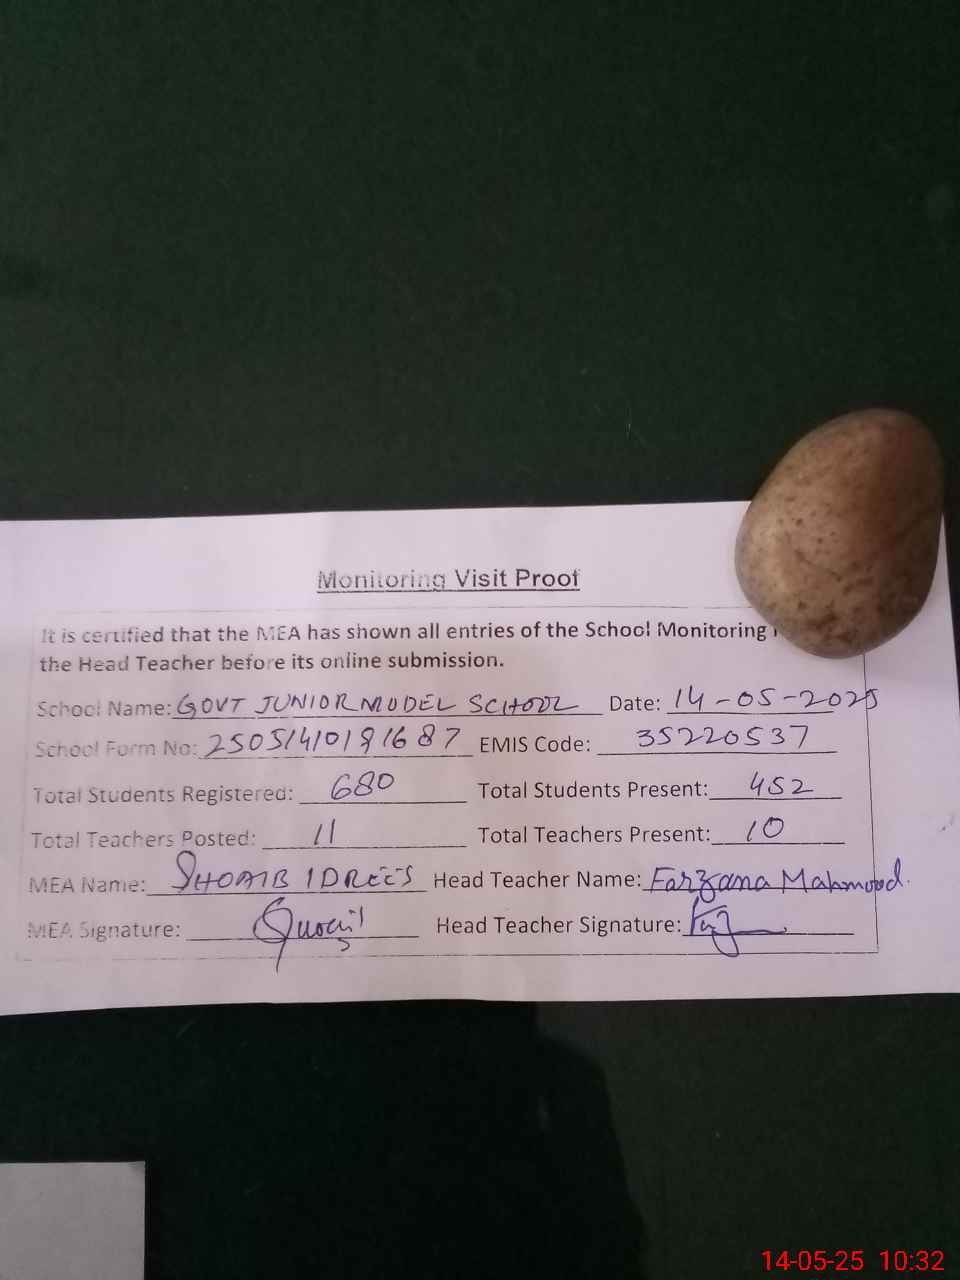 Monitoring Visit Proof
It is certified that the MEA has shown all entries of the School Monitoring
the Head Teacher before its online submission.
School Name: GOVT JUNIOR MODEL SCHOOL Date: 14-05-2025
School Form No: 25051410191687 EMIS Code: 35220537
Total Students Registered: 680 Total Students Present: 452
Total Teachers Posted: 11 Total Teachers Present: 10
MEA Name: SHOAIB IDREES Head Teacher Name: Farzana Mahmood.
MEA Signature: Head Teacher Signature:
14-05-25 10:32